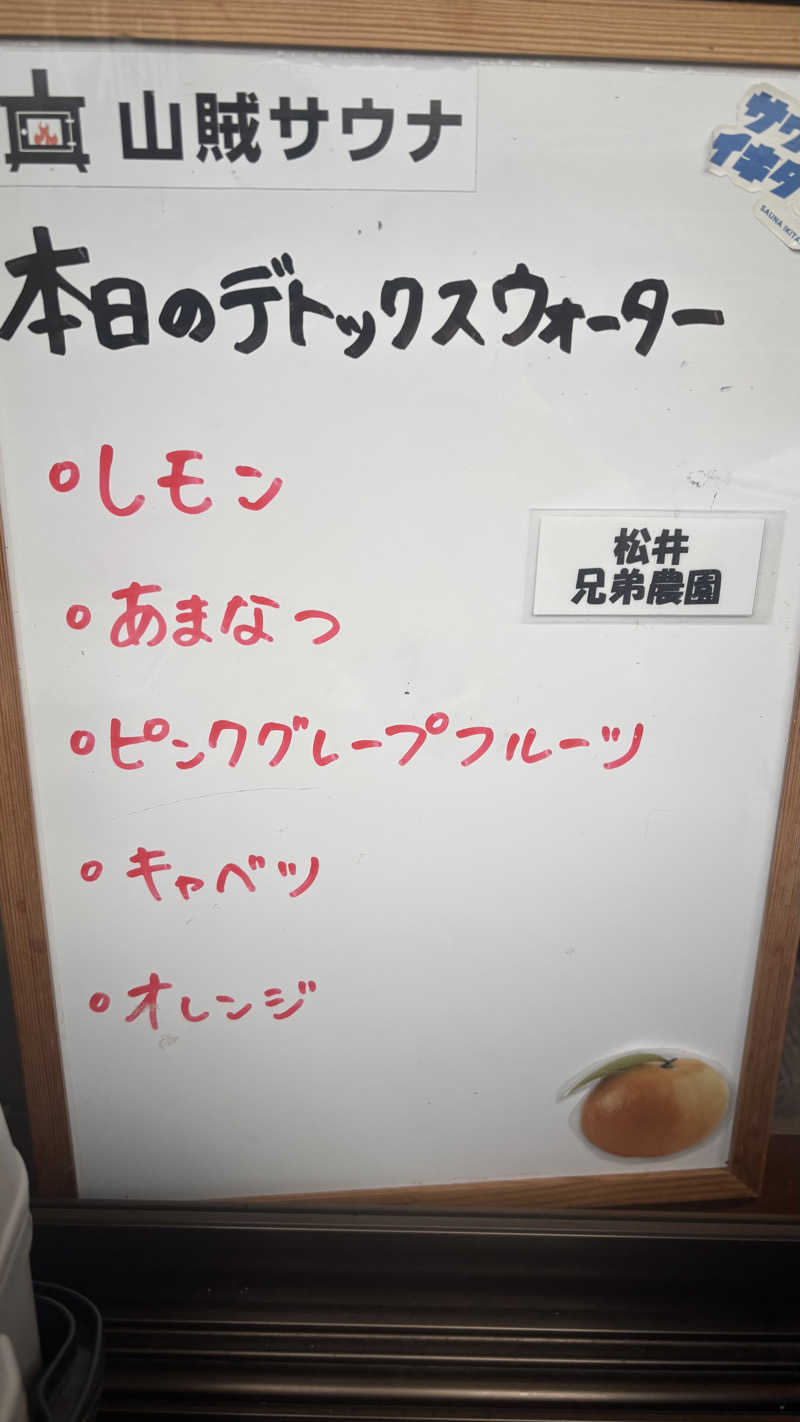 山賊サウナ
サウ
イキタ
SAUNA IKITA
本日のデトックスウォーター
○レモン
松井
兄弟農園
○あまなつ
○ピンクグレープフルーツ
○キャベツ
○オレンジ